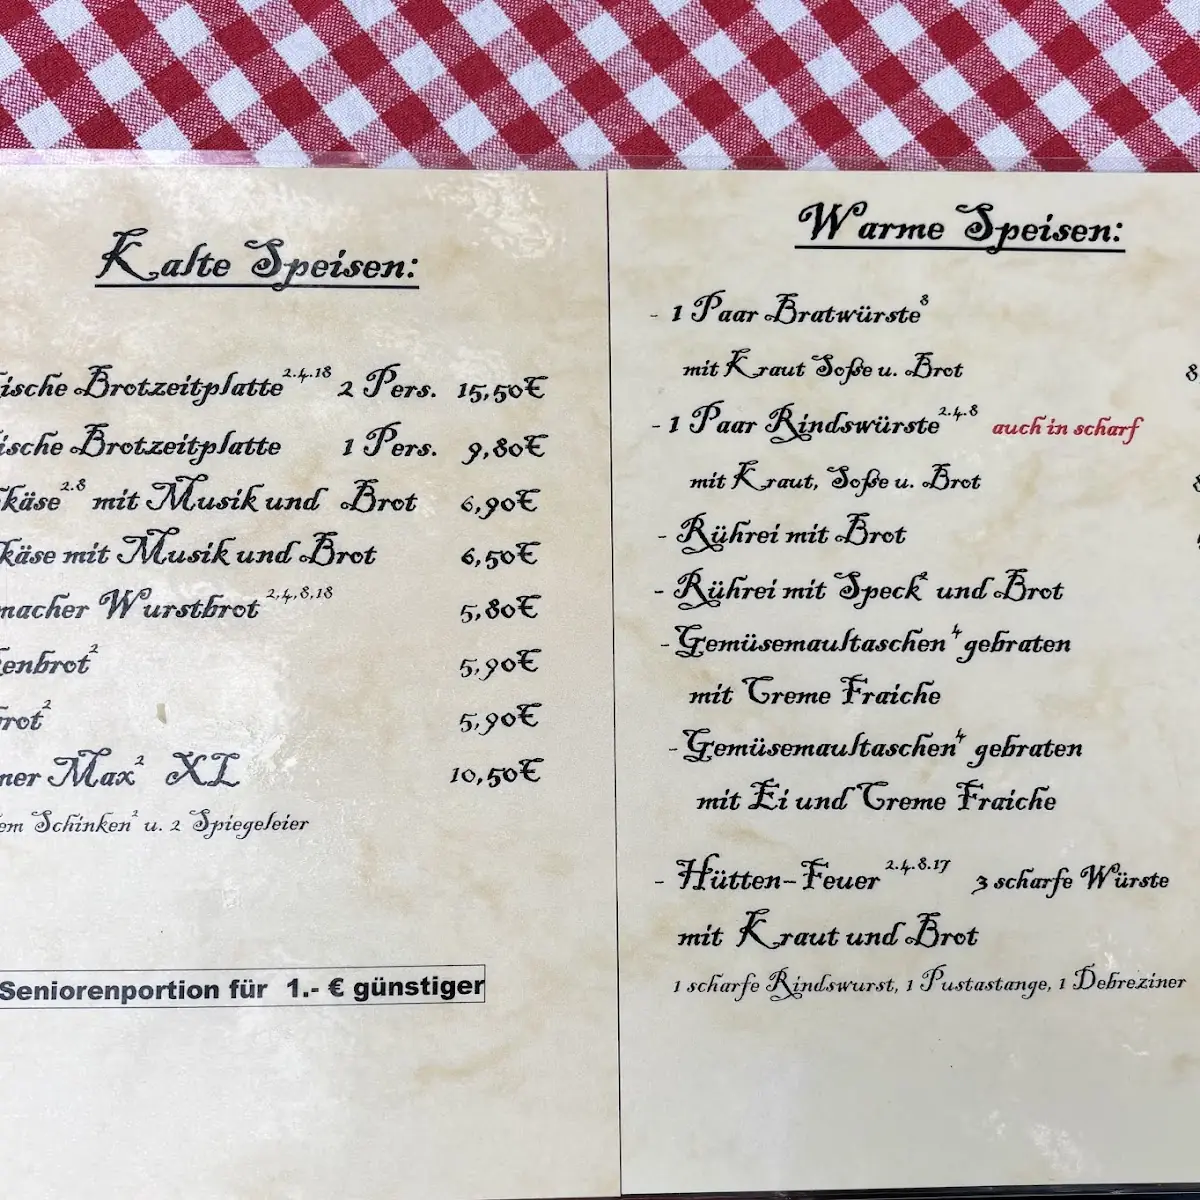 Kalte Speisen:
ische Brotzeitplatte 2.4.18 2 Pers. 15,50€
ische Brotzeitplatte 1 Pers. 9,80€
käse 2.8 mit Musik und Brot 6,90€
käse mit Musik und Brot 6,50€
macher Wurstbrot 2,4,8,18 5,80€
kenbrot 2 5,90€
brot 2 5,90€
mer Max 2 XL 10,50€
em Schinken 2 u. 2 Spiegeleier
Seniorenportion für 1.- € günstiger
Warme Speisen:
- 1 Paar Bratwürste 8
mit Kraut Soße u. Brot 8
- 1 Paar Rindswürste 2.4.8 auch in scharf
mit Kraut, Soße u. Brot
- Rührei mit Brot
- Rührei mit Speck 2 und Brot
- Gemüsemaultaschen 4 gebraten
mit Creme Fraiche
- Gemüsemaultaschen 4 gebraten
mit Ei und Creme Fraiche
- Hütten-Feuer 2.4.8.17 3 scharfe Würste
mit Kraut und Brot
1 scharfe Rindswurst, 1 Pustastange, 1 Debreziner